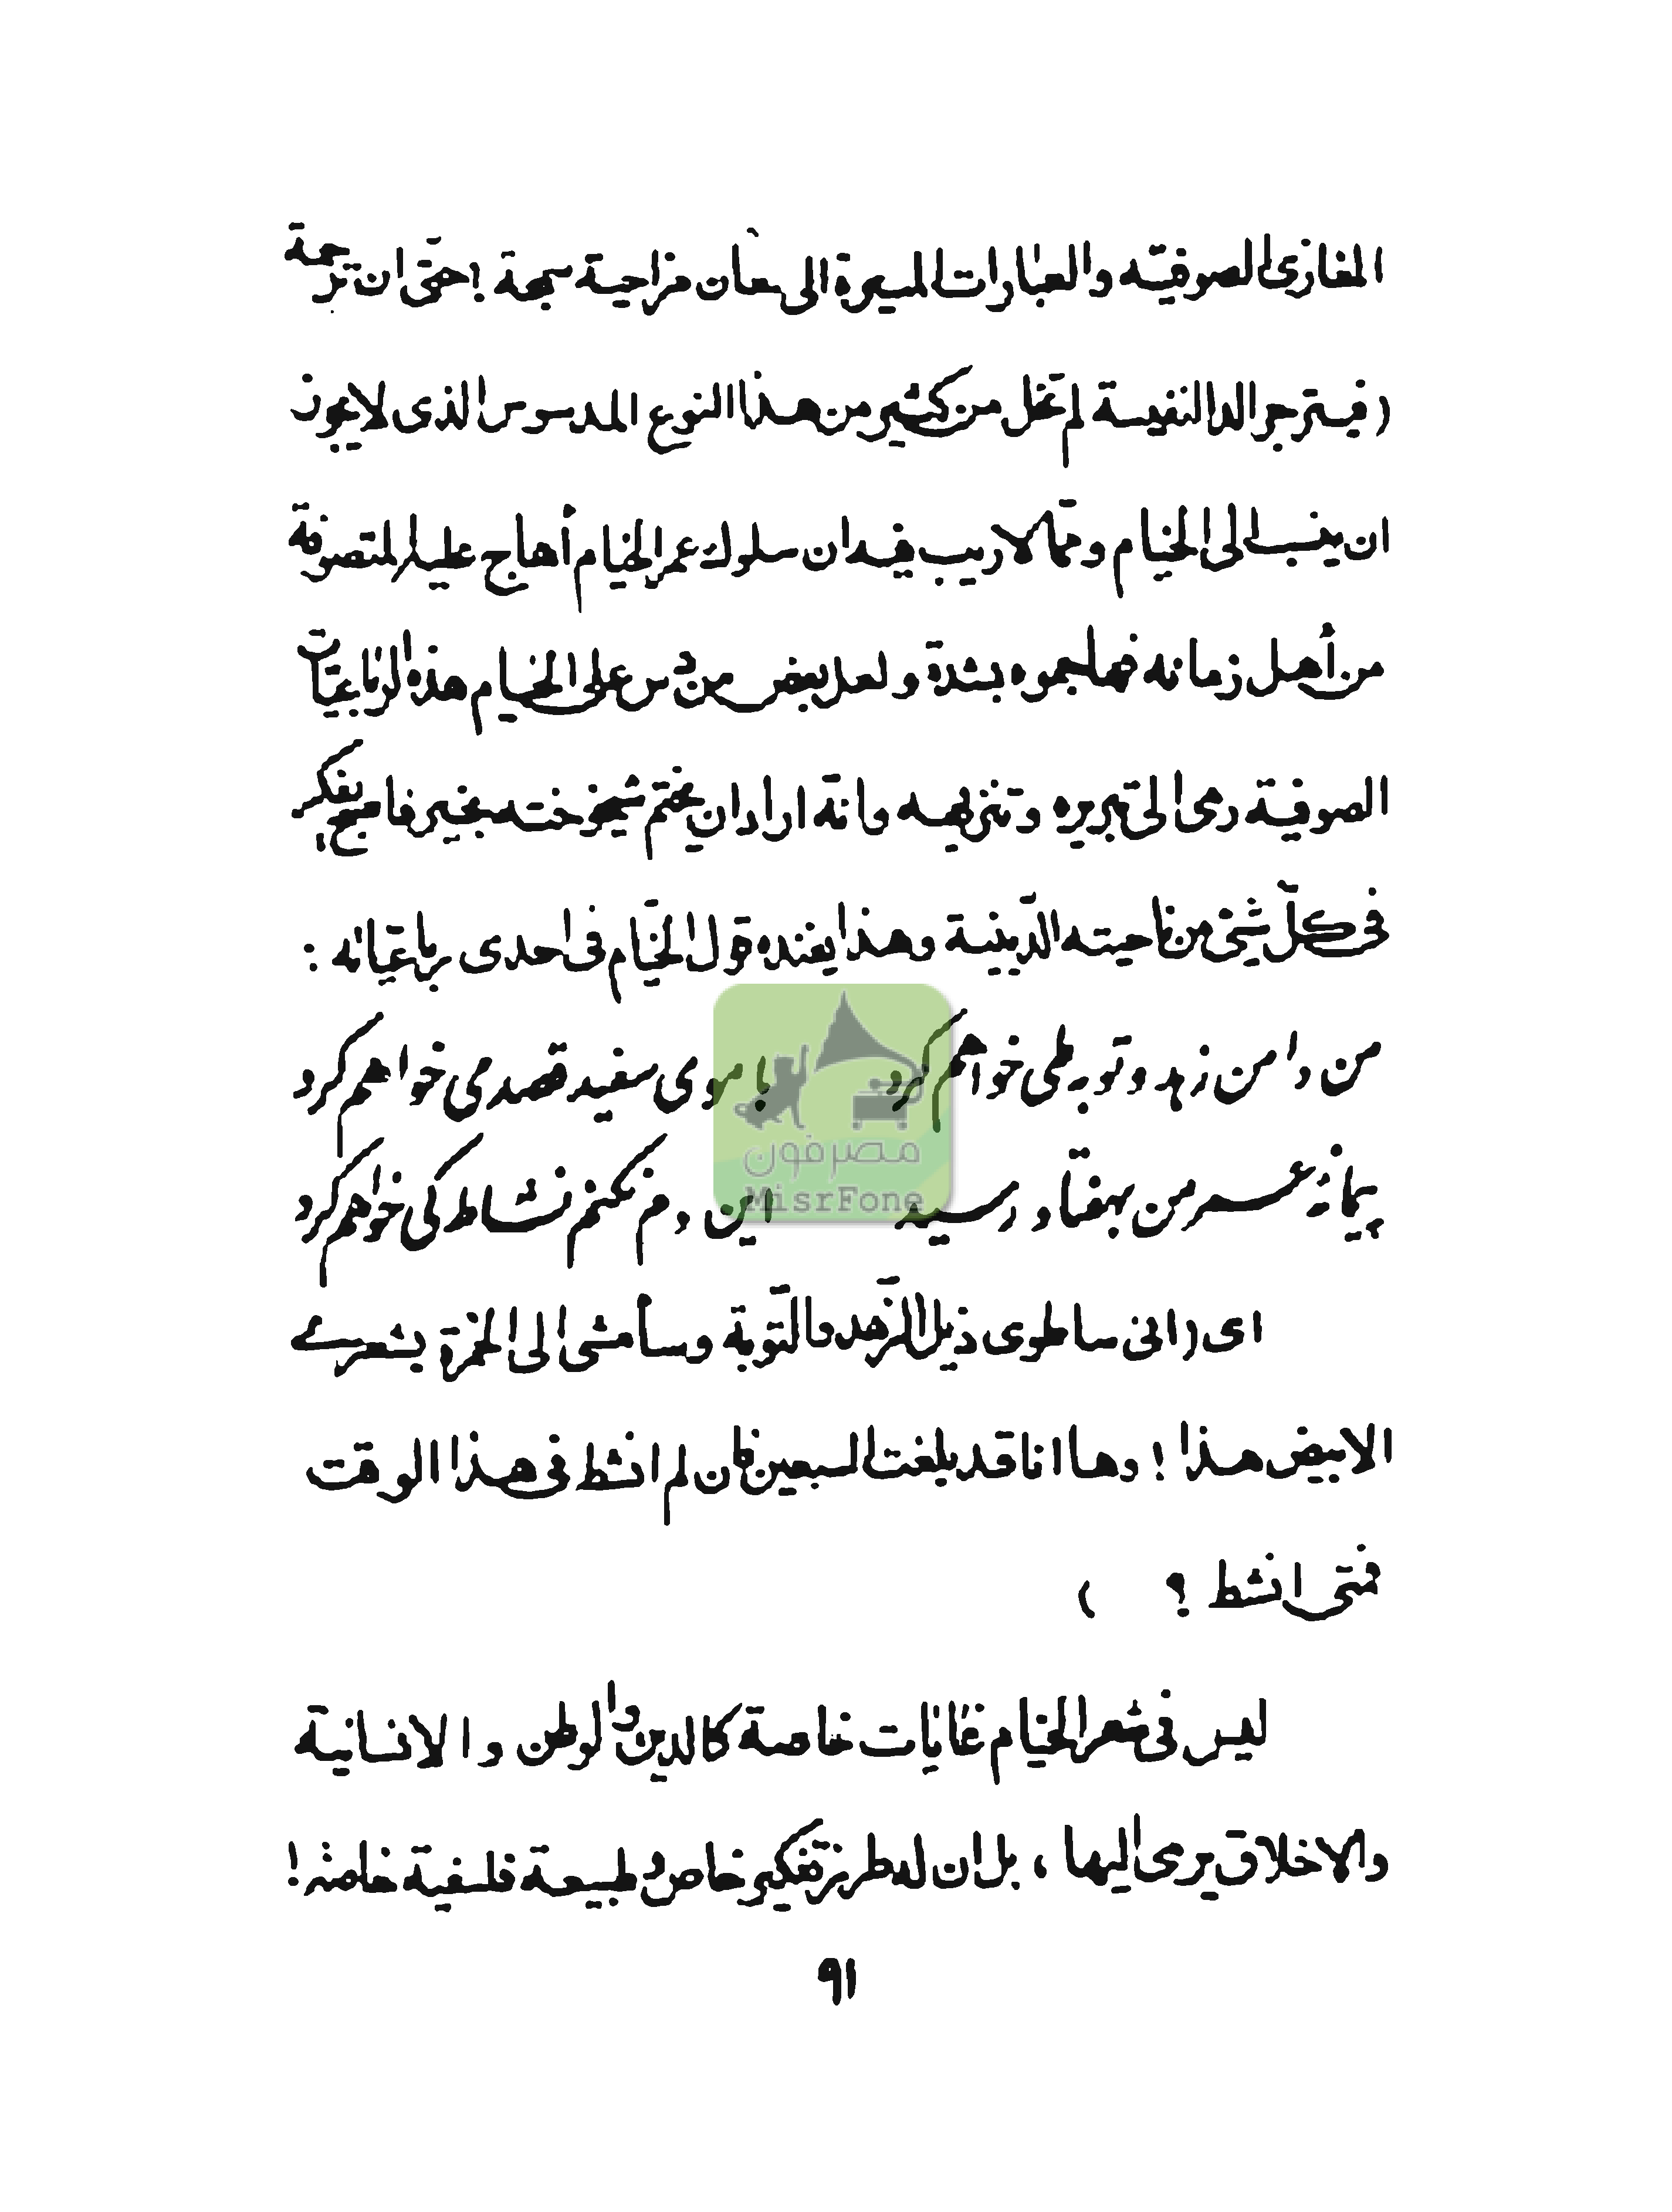 المغازى الصوفيّه والعبارات المسيرة الى معان مزاحية سمجة ! حتى ان ترجمة
( فيتزجرالد النفيسة لم تخل من كثير من هذا النوع المدسوس الذى لا يجوز
ان ينسب الى الخيام وممّا لا ريب فيه ان سلوك عمر الخيام أهاج عليه المتصوفة
من أهل زمانه فهاجموه بشدة ولعل بعض من دس على الخيام هذه الرباعيّات
الصوفية رمى الى تبريره وتنزيهه وانّه اراد ان يختم شيخوخته بخير فاصبح يفكر
فى كلّ شئ من ناحيته الدّينية وهذا يفنده قول الخيّام فى احدى رباعيّاته :
من دامن زهد وتوبه طى خواهم كرد با موى سفيد قصد مى خواهم كرد
پيمانهٔ عمر من بهفتاد رسيد اين دم نكنم نشاط كى خواهم كرد
اى ( انى ساطوى ذيل الزّهد والتّوبة وسأمشى الى الخمرة بشعرى
الابيض هذا ! وها انا قد بلغت السبعين فان لم انشط فى هذا الوقت
فمتى انشط ؟ )
ليس فى شعر الخيام غايات خاصة كالدين والوطن والانسانية
والاخلاق يرمى اليها ، بل ان له طرز تفكير خاص وطبيعة فلسفية خاصة !
٩١
مصرفون
MisrFone